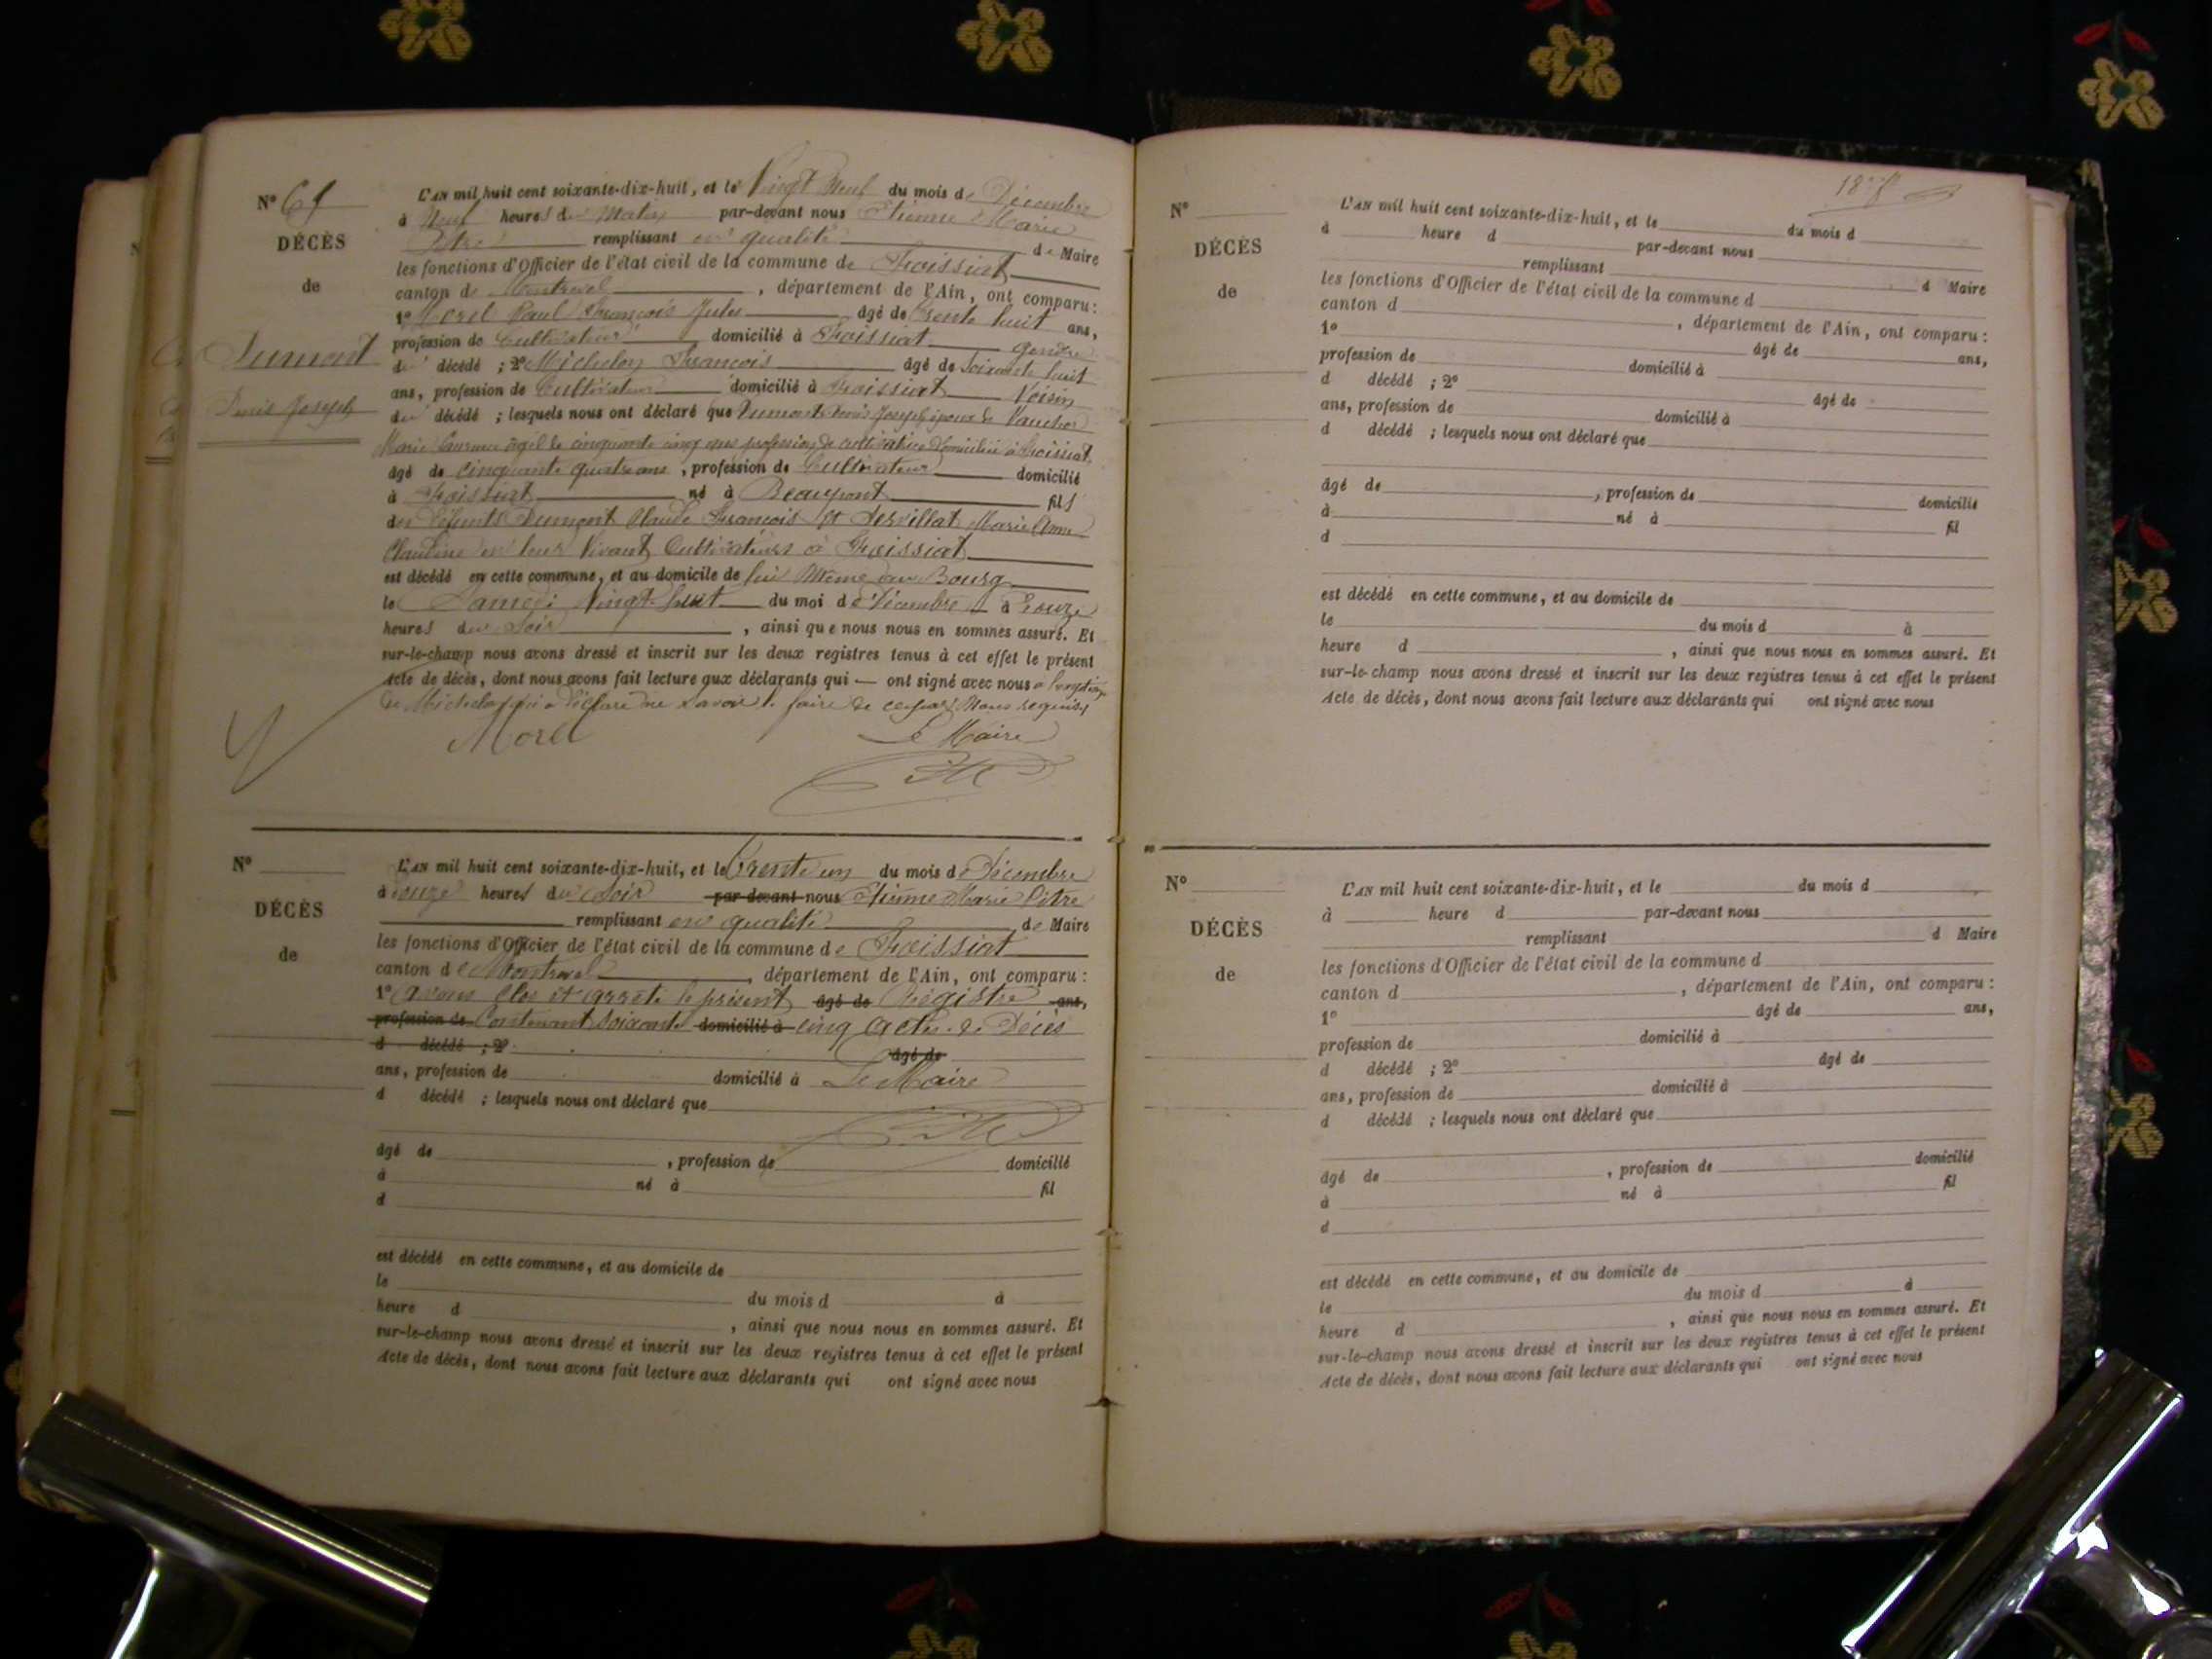 N° 65
DÉCÈS
de
Dumont
Denis Joseph
L'AN mil huit cent soixante-dix-huit, et le Vingt Neuf du mois de Décembre
à Neuf heures du Matin par-devant nous Etienne Marie
Pitre remplissant en qualité de Maire
les fonctions d'Officier de l'état civil de la commune de Foissiat
canton de Montrevel, département de l'Ain, ont comparu :
1° Morel Paul François Jules âgé de trente huit ans,
profession de Cultivateur domicilié à Foissiat gendre
du décédé ; 2° Michelon François âgé de Soixante huit
ans, profession de Cultivateur domicilié à Foissiat Voisin
du décédé ; lesquels nous ont déclaré que Dumont Denis Joseph époux de Vaucher
Marie Laurence âgée de cinquante cinq ans profession de cultivatrice domiciliée à Foissiat
âgé de cinquante quatre ans, profession de Cultivateur domicilié
à Foissiat né à Beaupont fils
des défunts Dumont Claude François et Servillat Marie Anne
Claudine en leur Vivant Cultivateurs à Foissiat
est décédé en cette commune, et au domicile de lui Même au Bourg
le Samedi Vingt huit du moi de Décembre à onze
heures du Soir, ainsi que nous nous en sommes assuré. Et
sur-le-champ nous avons dressé et inscrit sur les deux registres tenus à cet effet le présent
Acte de décès, dont nous avons fait lecture aux déclarants qui — ont signé avec nous à l'exception
de Michelon qui a déclaré ne savoir le faire de ce par Nous requis
Morel
Le Maire
N°
DÉCÈS
de
L'AN mil huit cent soixante-dix-huit, et le Trente un du mois de Décembre
à onze heures du Soir par-devant nous Etienne Marie Pitre
remplissant en qualité de Maire
les fonctions d'Officier de l'état civil de la commune de Foissiat
canton de Montrevel, département de l'Ain, ont comparu :
1° Avons Clos et arrêté le présent âgé de Régistre ans,
profession de Contenant Soixante domicilié à cinq Actes de Décès
d décédé ; 2° âgé de
ans, profession de domicilié à Le Maire
d décédé ; lesquels nous ont déclaré que
âgé de , profession de domicilié
à né à fil
d
est décédé en cette commune, et au domicile de
le du mois d à
heure d , ainsi que nous nous en sommes assuré. Et
sur-le-champ nous avons dressé et inscrit sur les deux registres tenus à cet effet le présent
Acte de décès, dont nous avons fait lecture aux déclarants qui ont signé avec nous
1878
N°
DÉCÈS
de
L'AN mil huit cent soixante-dix-huit, et le du mois d
à heure d par-devant nous
remplissant d Maire
les fonctions d'Officier de l'état civil de la commune d
canton d , département de l'Ain, ont comparu :
1° âgé de ans,
profession de domicilié à
d décédé ; 2° âgé de
ans, profession de domicilié à
d décédé ; lesquels nous ont déclaré que
âgé de , profession de domicilié
à né à fil
d
est décédé en cette commune, et au domicile de
le du mois d à
heure d , ainsi que nous nous en sommes assuré. Et
sur-le-champ nous avons dressé et inscrit sur les deux registres tenus à cet effet le présent
Acte de décès, dont nous avons fait lecture aux déclarants qui ont signé avec nous
N°
DÉCÈS
de
L'AN mil huit cent soixante-dix-huit, et le du mois d
à heure d par-devant nous
remplissant d Maire
les fonctions d'Officier de l'état civil de la commune d
canton d , département de l'Ain, ont comparu :
1° âgé de ans,
profession de domicilié à
d décédé ; 2° âgé de
ans, profession de domicilié à
d décédé ; lesquels nous ont déclaré que
âgé de , profession de domicilié
à né à fil
d
est décédé en cette commune, et au domicile de
le du mois d à
heure d , ainsi que nous nous en sommes assuré. Et
sur-le-champ nous avons dressé et inscrit sur les deux registres tenus à cet effet le présent
Acte de décès, dont nous avons fait lecture aux déclarants qui ont signé avec nous